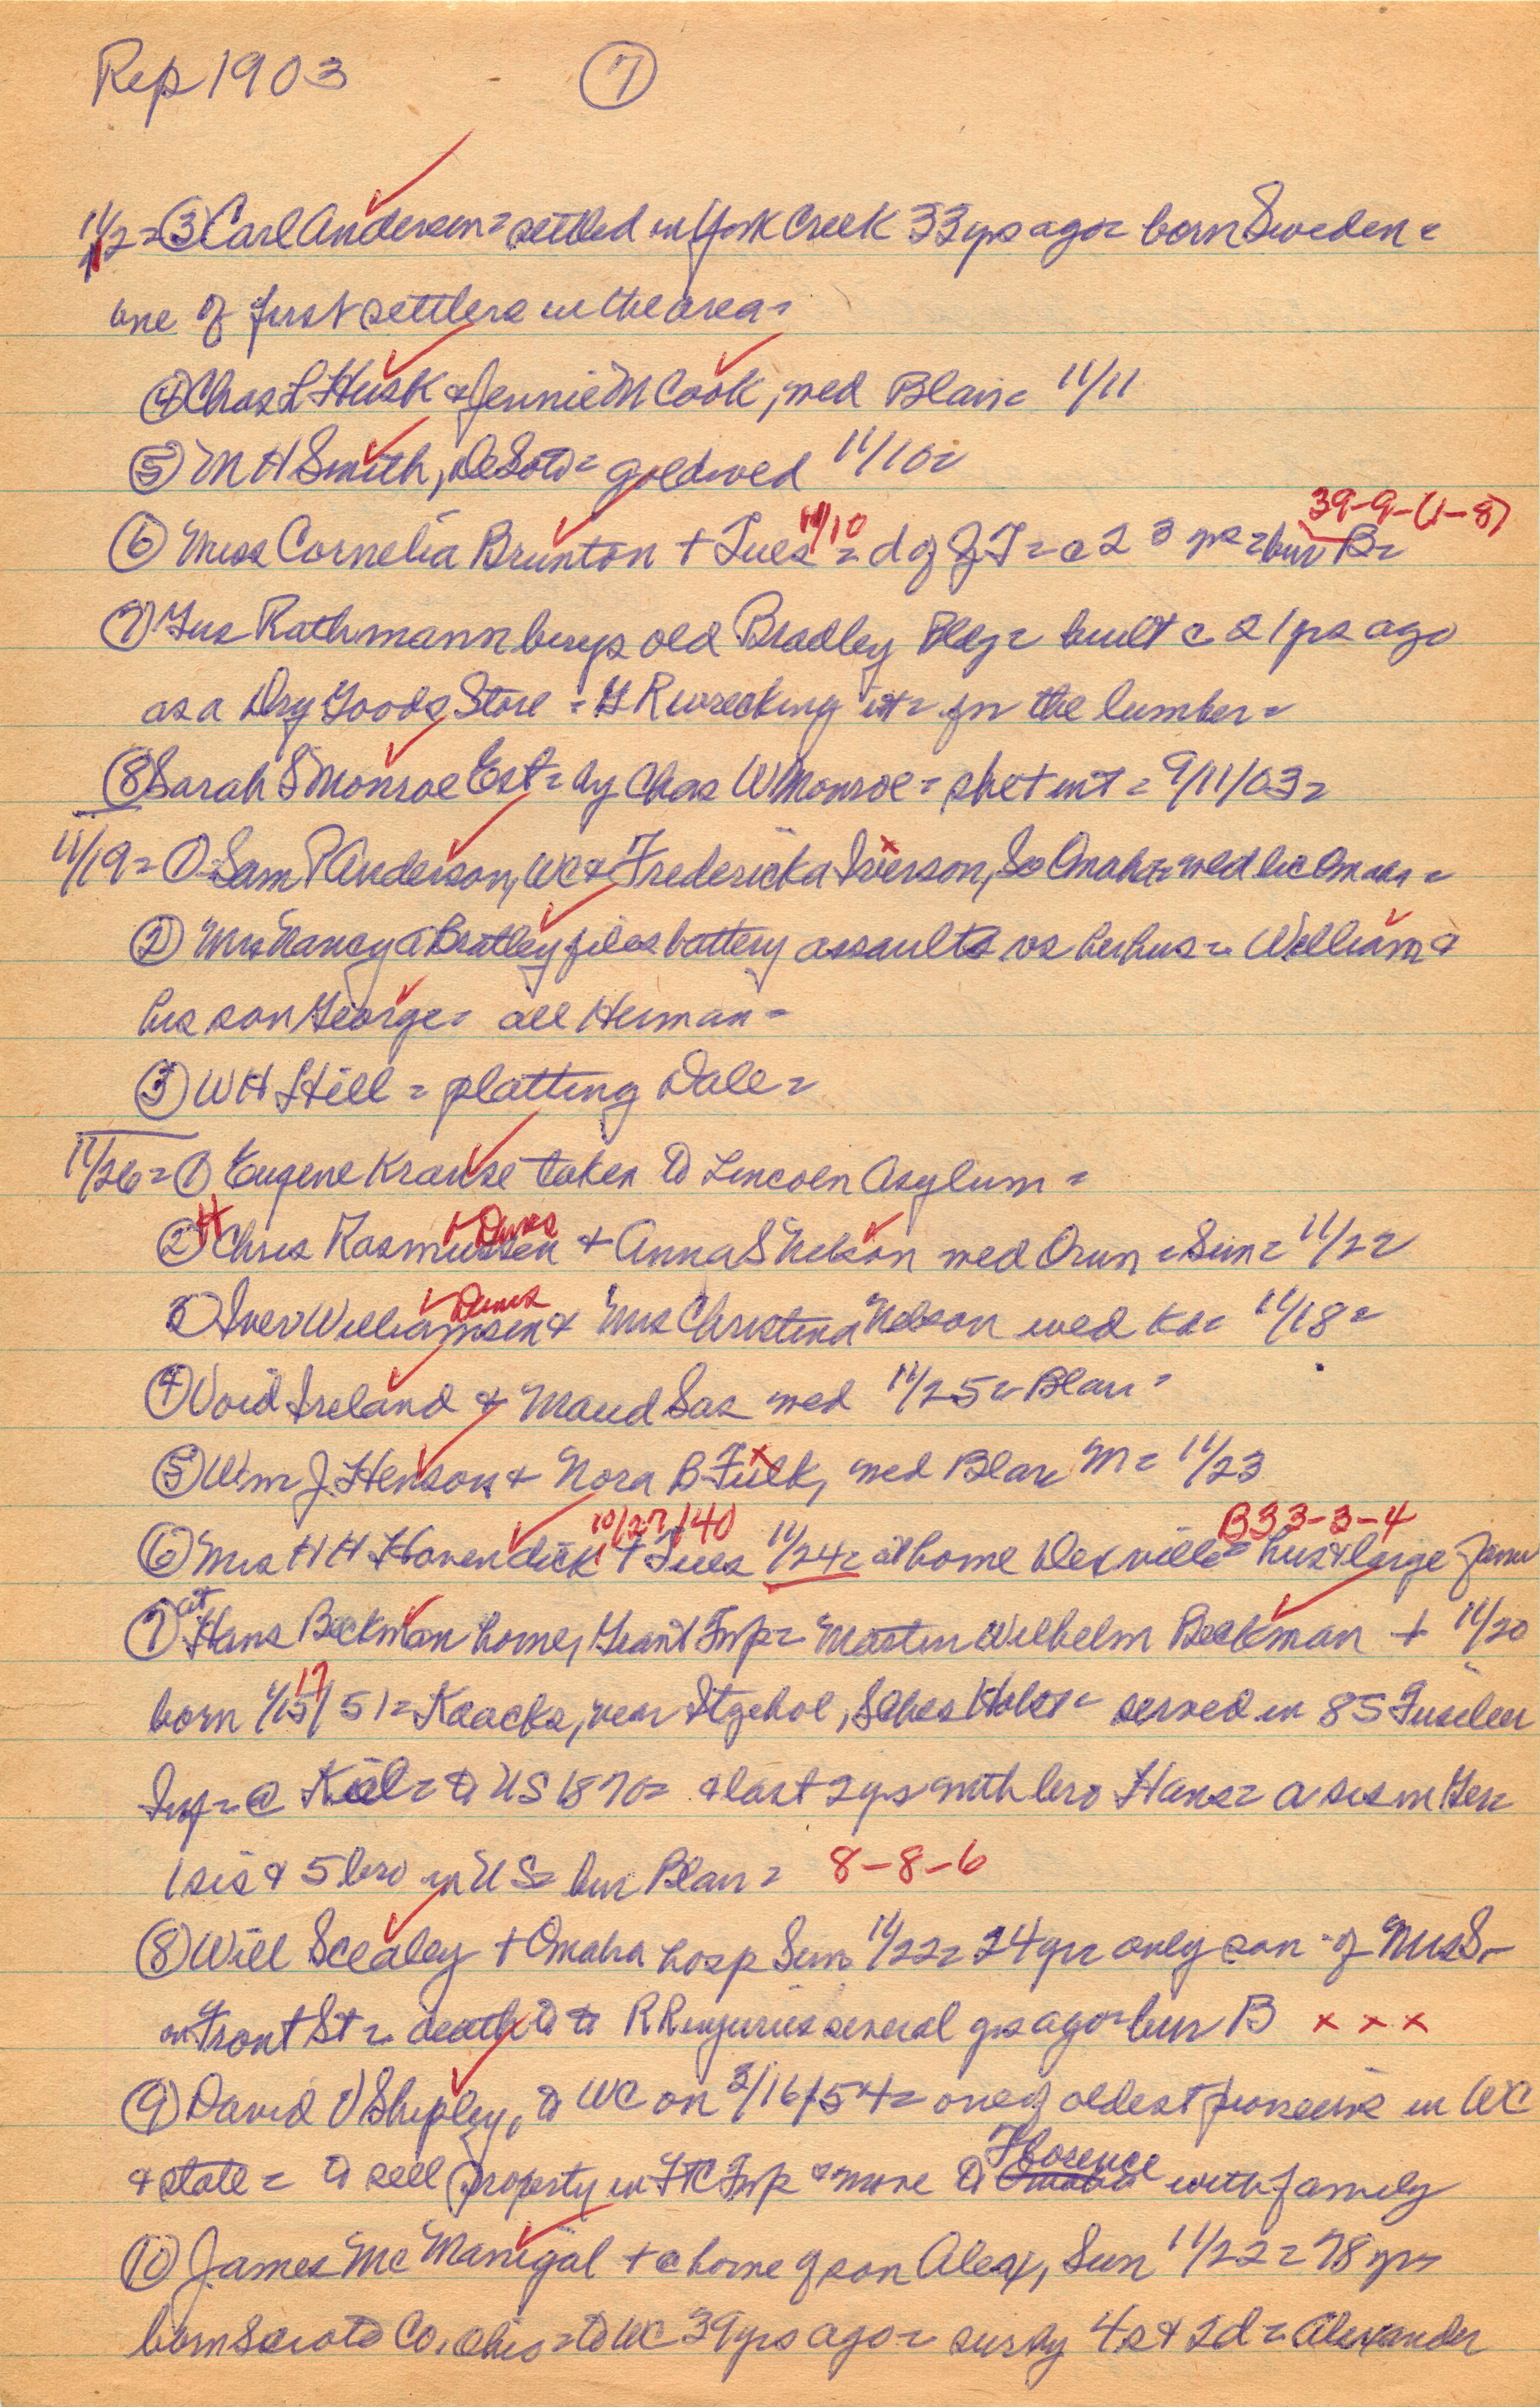 Rep 1903 7
11/12 = 3 Carl Andersen = settled in York Creek 33 yrs ago = born Sweden =
one of first settlers in the area =
4 Chas L Husk & Jennie M Cook, wed Blair = 11/11
5 M H Smith, DeSoto = gold wed 11/10 =
39-9-(1-8)
6 Miss Cornelia Brunton + Tues 11/10 = d of J T = c 23 yrs = bur B =
7 Gus Rathmann buys old Bradley Bldg = built c 21 yrs ago
as a Dry Goods Store = G R wrecking it = for the lumber =
8 Sarah S Monroe Est = by Chas W Monroe = pbet int = 9/11/03 =
11/19 = 1 = Sam P Anderson, WC & Fredericka Iverson, So Omaha = wed lic Omaha =
2 Mrs Nancy A Bratley files battery assault vs her hus = William &
his son George = all Herman =
3 W H Hill = platting Dale =
11/26 = 1 Eugene Krause taken to Lincoln Asylum =
H Danes
2 Chris Rasmussen & Anna S Nelson wed Orum = Sun = 11/22
Danes
3 Iver Williamsen & Mrs Christina Nelson wed Ka = 11/18 =
4 Void Ireland & Maud Sas wed 11/25 = Blair =
5 Wm J. Henson & Nora B Fulk, wed Blair M = 11/23
10/27/40 B33-3-4
6 Mrs H H Hovendick + Tues 11/24 = at home Dexville = hus & large fam
7 at Hans Beckman home, Grant Twp = Martin Wilhelm Beckman + 11/20
17
born 1/15/51 = Kaacks, near Itzehol, Schles Holst = served in 85 Fusileer
Inf = @ Kiel = to US 1870 = & last 2 yrs with bro Hans = a sis in Ger
1 sis & 5 bro in US = bur Blair = 8-8-6
8 Will Scealey + Omaha hosp Sun 11/22 = 24 yr = only son of Mrs S -
on Front St = death to RR injuries several yrs ago = bur B x x x
9 David V Shipley, to WC on 3/16/54 = one of oldest pioneers in WC
Florence
& state = to sell property in FTC Twp & move to Omaha with family
10 James McManigal + @ home of son Alex, Sun 11/22 = 78 yrs
born Scioto Co, Ohio = to WC 39 yrs ago = surv by 4s & 2d = Alexander